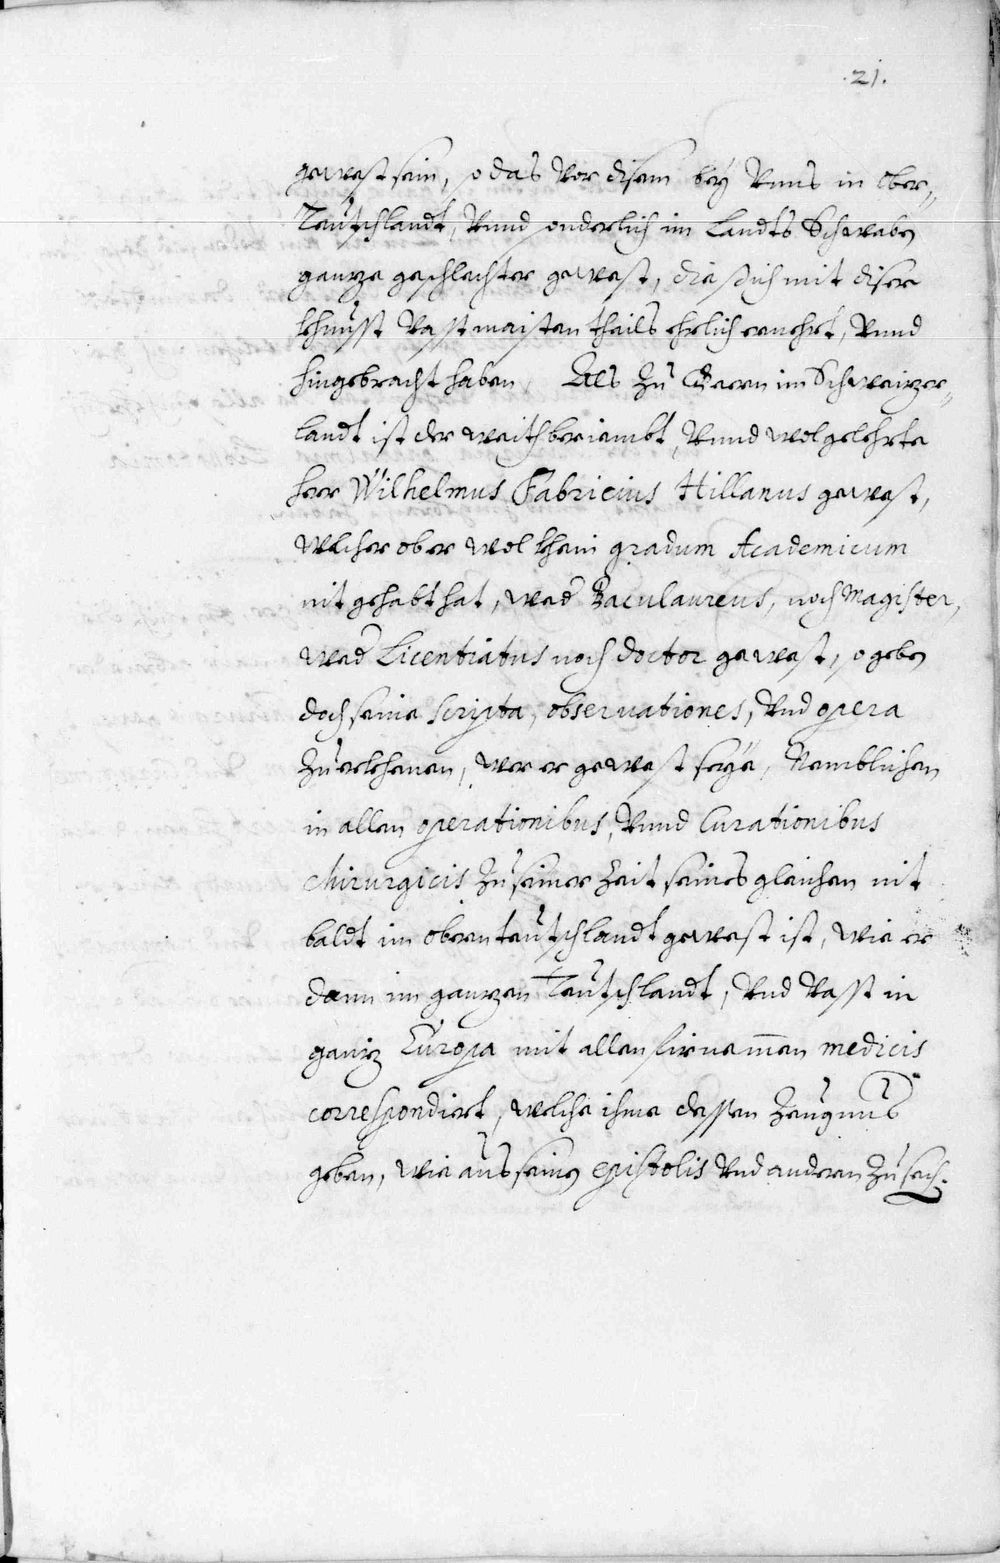 .21.
gewest sein, so das vor disem beÿ Vnns in Ober-
Teütschlandt, Vnnd sonderlich im Landts Schwaben
gantze geschlechter gewest, die sich mit diser
khunst Vast maisten theils ehrlich ernehrt, Vnnd
hingebracht haben, Als zu Bern im Schweitzer-
landt ist der weithberiembt, Vnnd wolgelehrte
herr Wilhelmus Fabricius Hillanus gewest,
welcher ober wol khein gradum Academicum
nit gehabt hat, wed Baculaureus, noch Magister,
wed Licentiatus noch doctor gewest, so geben
doch seine scripta, obseruationes, Vnd opera
zuerkhenen, wer er gewest seÿe, Nemblichen
in allen operationibus, Vnnd Curationibus
chirurgicis zu seiner Zeit seines gleichen nit
baldt im obern teütschlandt gewest ist, wie er
dann im gantzen Teütschlandt, Vnd Vasst in
gantz Europa mit allen firnem̄en medicis
correspondiert, welche ihme dessen Zeugnus
geben, wie aus seinen epistolis Vnd anderen zu seh.